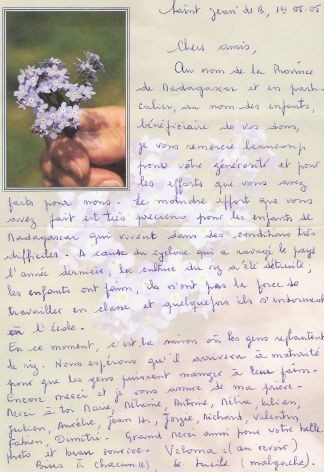 Saint Jean de B, 1 05-05
Chers amis,
Au nom de la Province
de Madagascar et en parti-
culier, au nom des enfants,
bénéficiaire de vos dons,
je vous remercie beaucoup
pour votre générosité et pour
les efforts que vous avez
faits pour nous. Le moindre effort que vous
avez fait est très précieux pour les enfants de
Madagascar qui vivent dans des conditions très
difficiles. A cause du cyclone qui a ravagé le pays
l'année dernière, la culture du riz a été détruite;
les enfants ont faim, ils n'ont pas la force de
travailler en classe et quelquefois ils s'endorment
à l'école.
En ce moment, c'est la saison où les gens replantent
le riz. Nous espérons qu'il arrivera à maturité
pour que les gens puissent manger à leur faim.
Encore merci et je vous assure de ma prière.
Merci à toi Marie, Mélanie, Antoine, Kilian,
Julien, Aurélie, Jean, Richard, Valentin,
Fabien, Dimitri. Grand merci aussi pour votre belle
photo et beau sourire. Veloma: (au revoir)
Bises à chacun(e), Sr Lucile (malgache).